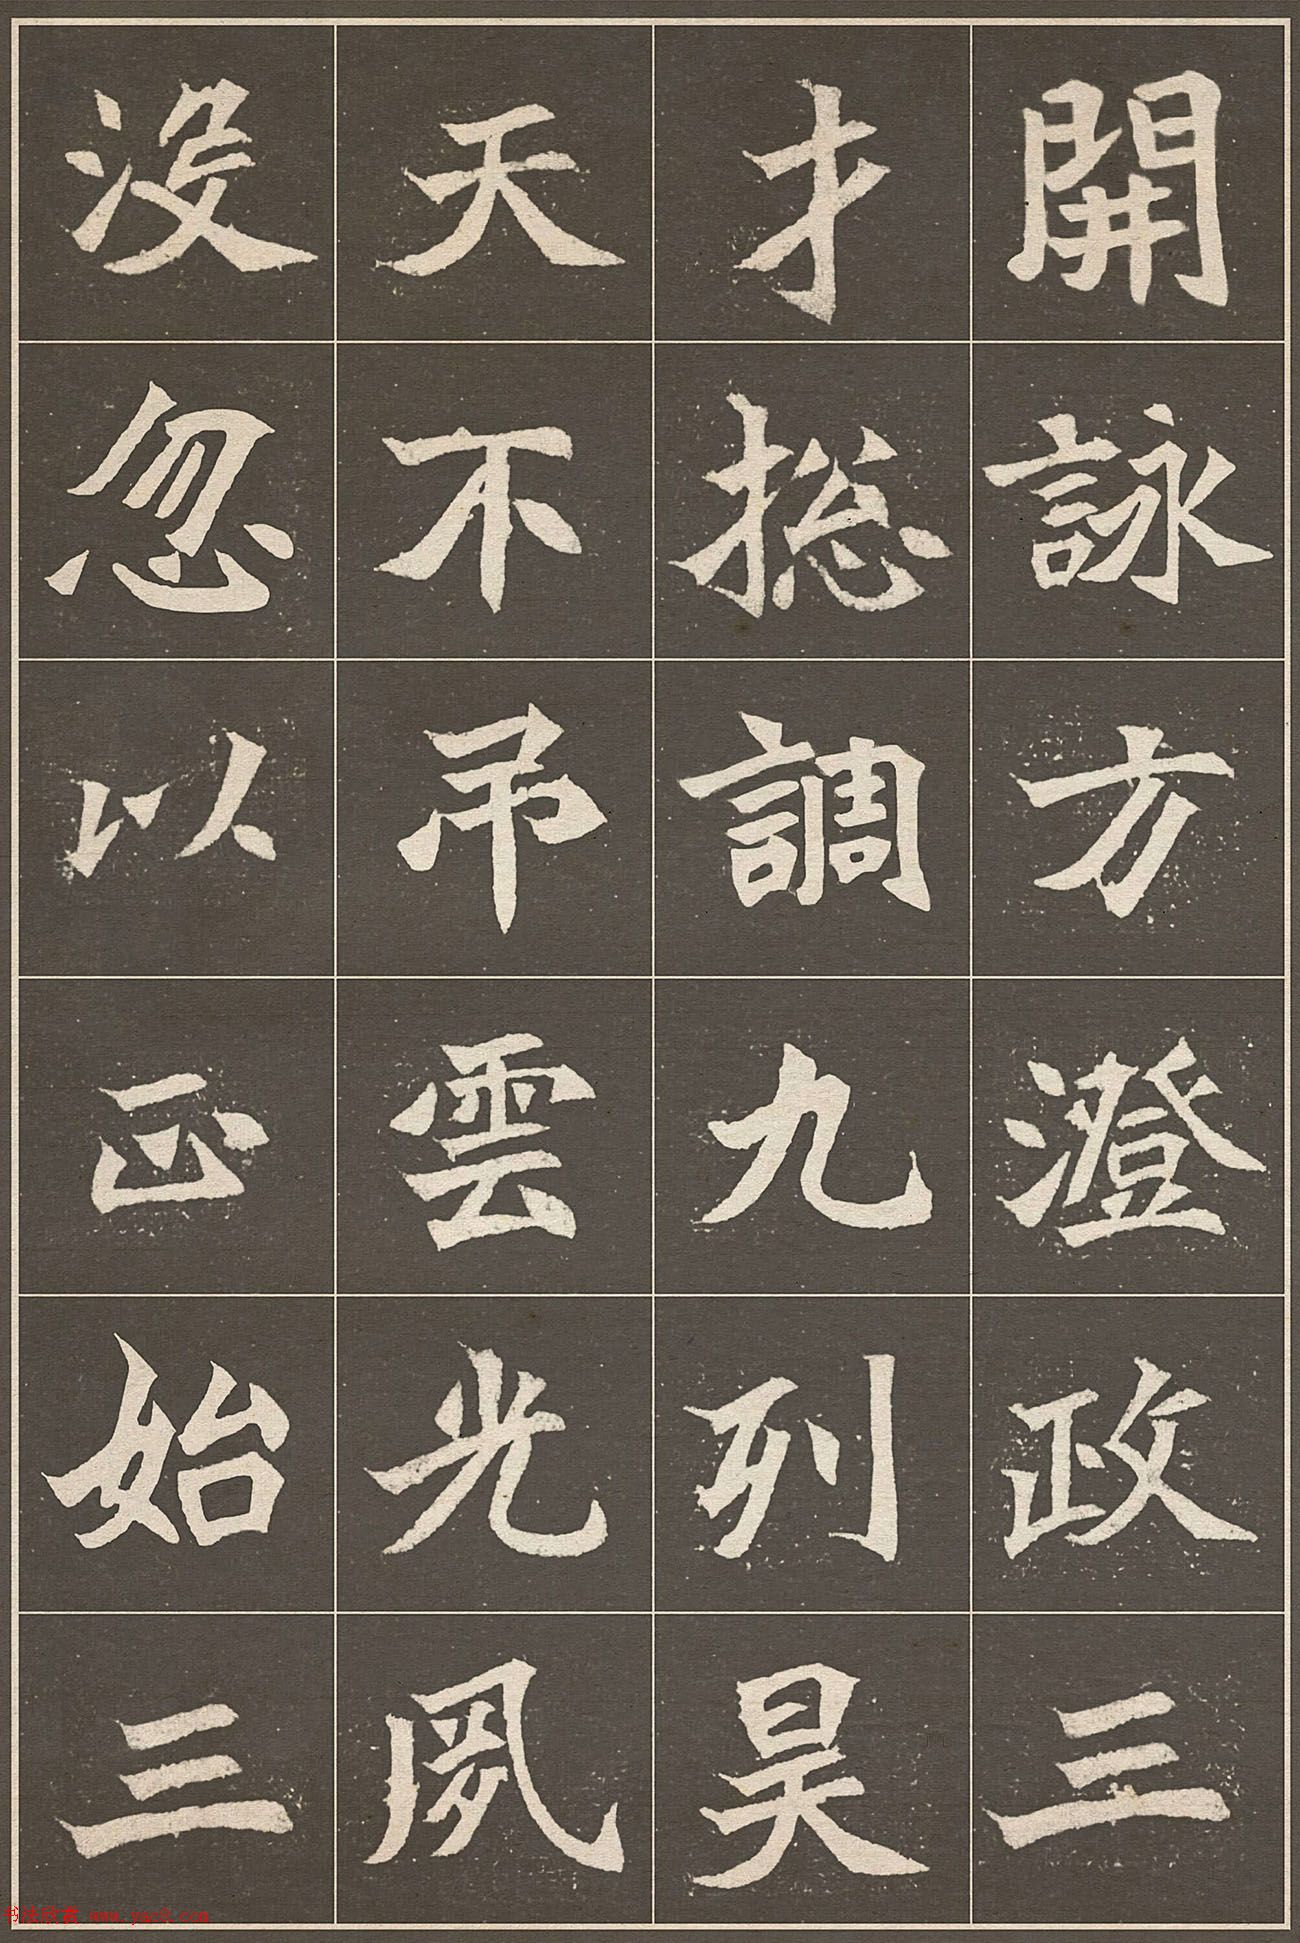 開詠方澄政三
才揔調九列昊
天不吊雲光夙
没忽以正始三
书法欣赏 www.yac8.com